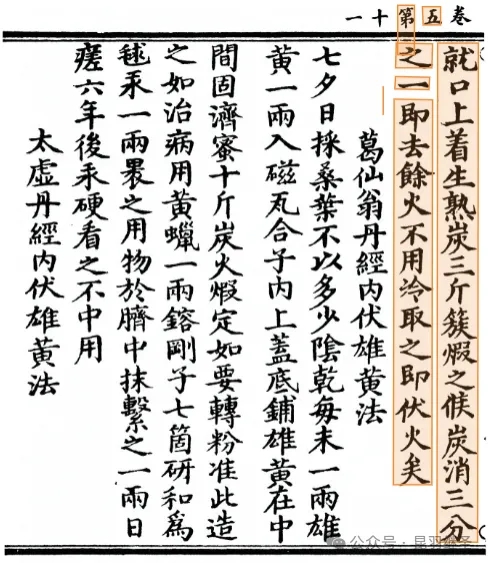 卷五第十一
就口上着生熟炭三斤簇煆之候炭消三分
之一即去餘火不用冷取之即伏火矣
葛仙翁丹經内伏雄黃法
七夕日採桑葉不以多少陰乾每末一兩雄
黃一兩入磁瓦合子内上蓋底鋪雄黃在中
間固濟蜜十斤炭火煆定如要轉粉准此造
之如治病用黃蠟一兩鎔剛子七箇研和爲
毬汞一兩褁之用物於臍中抹繫之一兩日
瘥六年後汞硬看之不中用
太虛丹經内伏雄黃法
公众号·昆羽继圣